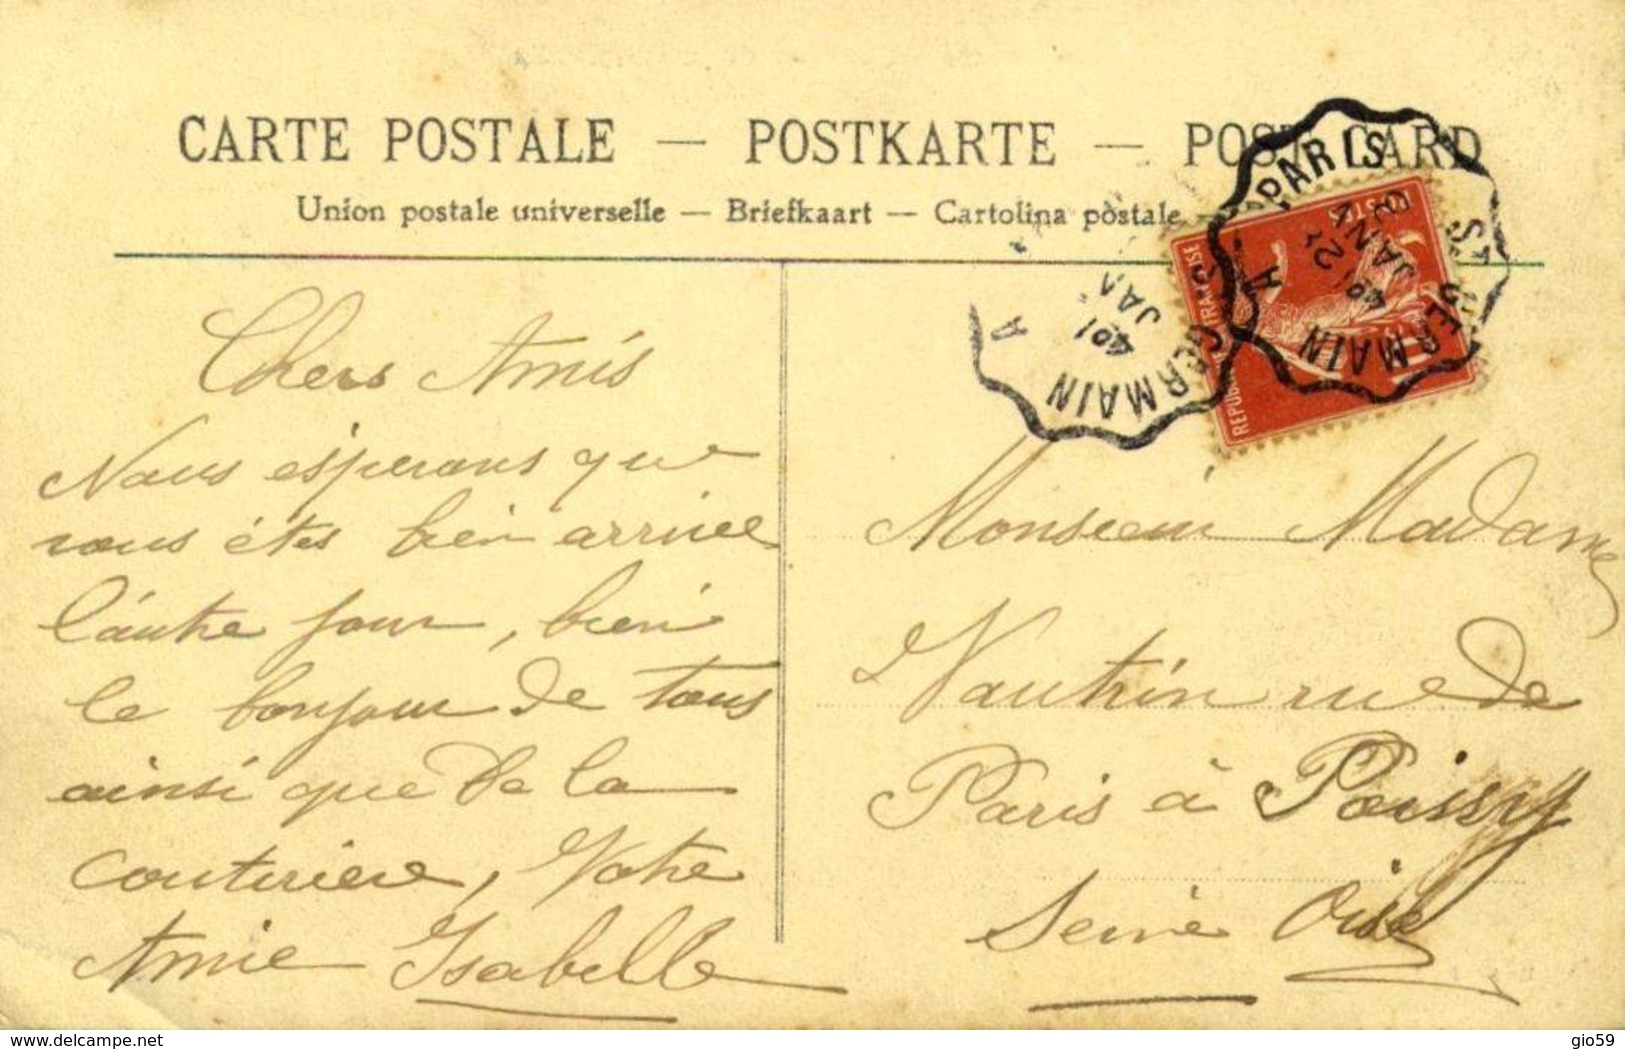 CARTE POSTALE — POSTKARTE — POST CARD
Union postale universelle — Briefkaart — Cartolina postale
PARIS
ST GERMAIN
A
JANV
GERMAIN
A
JAN
REPUBLIQUE FRANÇAISE
POSTES
Chers Amis
Nous esperons que
vous êtes bien arrivée
l'autre jour, bien
le bonjour de tous
ainsi que de la
couturiere, Votre
Amie Isabelle
Monsieur Madame
Vautrin rue de
Paris à Poissy
Seine Oise
www.delcampe.net
gio59